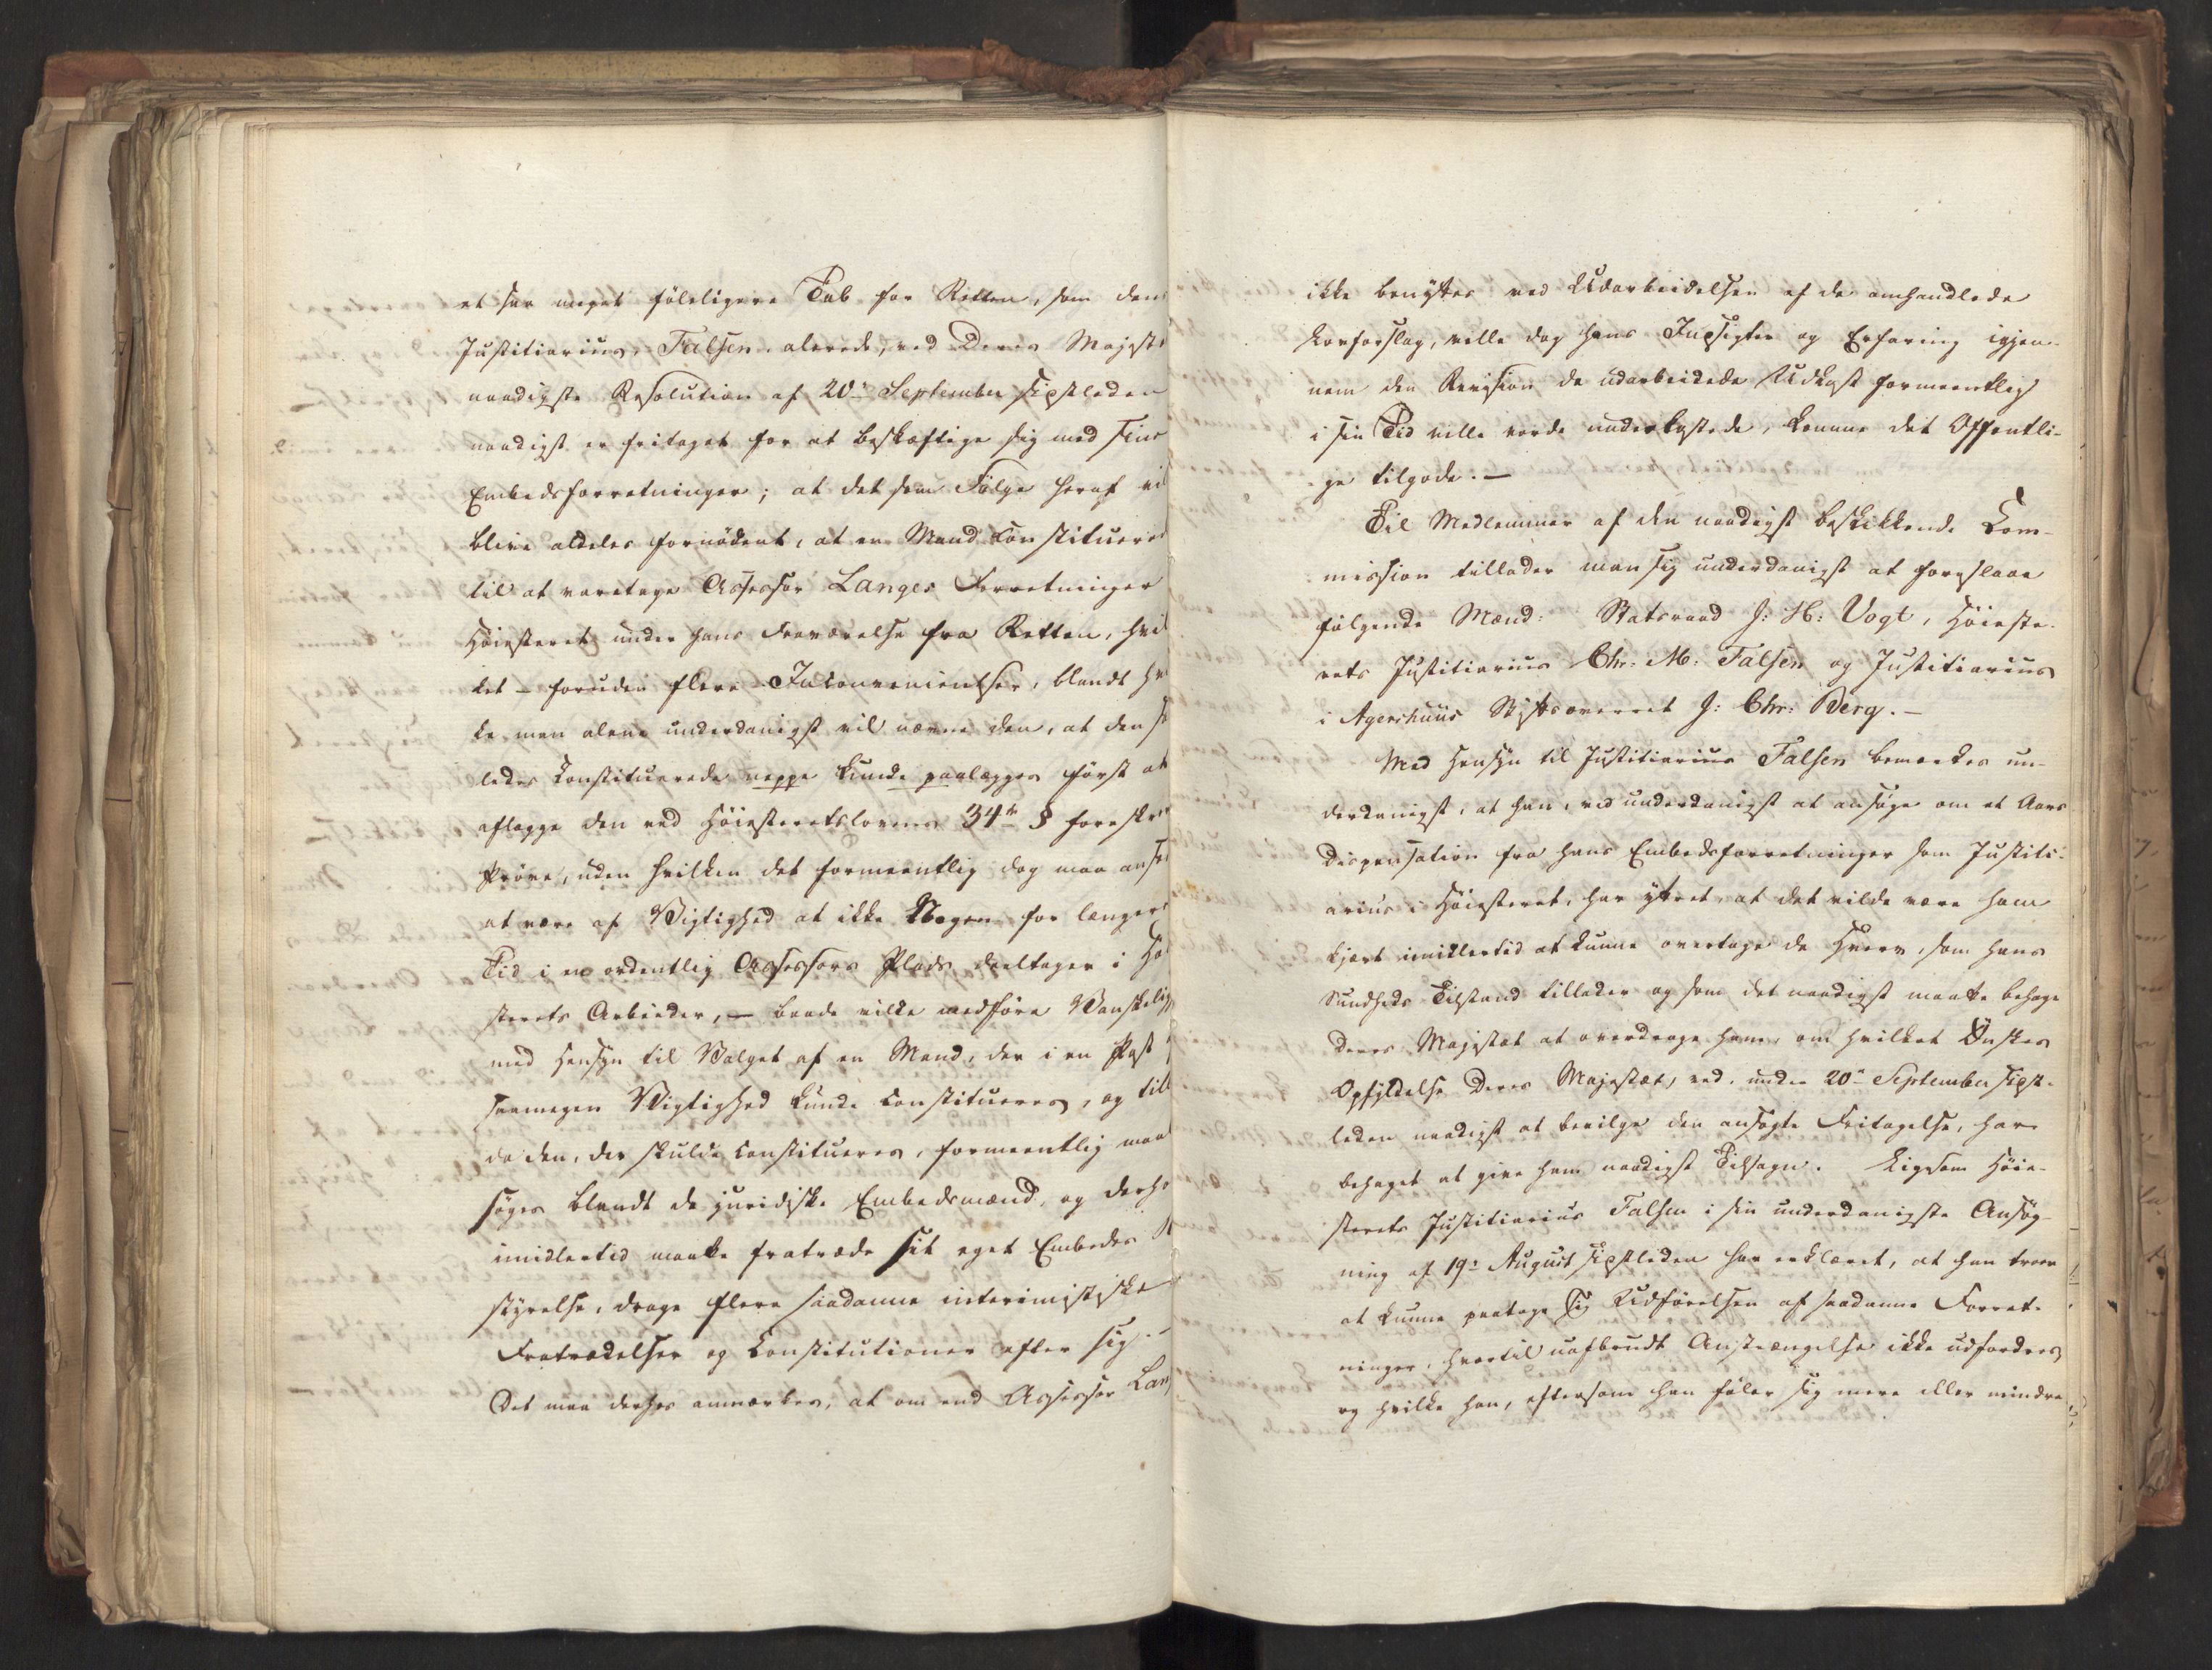 et saa meget føleligere Tab for Retten, som dens
Justitiarius, Falsen allerede, ved Deres Majestæ
naadigste Resolution af 20de September sidstleden
naadigst er fritaget for at beskæftige sig med sine
Embedsforretninger; at det som Følge heraf vil
blive aldeles fornødent, at en Mand constitueres
til at varetage Assessor Langes Forretninger
Høiesteret under hans Fraværelse fra Retten, hvil
ket – foruden flere Inconvenientser, blandt hvil
ke man alene underdanigst vil nævne den, at den saa
ledes Constituerede neppe kunde paalægges først at
aflægge den ved Høiesteretslovens 34te § foreskr
Prøve, uden hvilken det formeentlig dog maa anse
at være af Vigtighed at ikke Nogen for længere
Tid i en ordentlig Assessors Plads deeltager i Høi
sterets Arbeider, – baade vilde medføre Vanskelig
med Hensyn til Valget af en Mand, der i en Post
saamegen Vigtighed kunde constitueres, og till
da den, der skulde constitueres, formeentlig maa
søges blandt de juridiske Embedsmænd, og derho
imidlertid maatte fratræde sit eget Embedes B
styrelse, drage flere saadanne interimistiske
Fratrædelser og Constitutioner efter sig. –
Det maa derhos anmærkes, at om end Assessor Lan
ikke benyttes ved Udarbeidelsen af de omhandlede
Lovforslag, ville dog hans Indsigter og Erfaring igjen-
nem den Revision de udarbeidede Udkast formeentlig
i sin Tid ville vorde underkastede, komme det Offentli-
ge tilgode. –
Til Medlemmer af den naadigst beskikkende Com-
mission tillader man sig underdanigst at foreslaae
følgende Mænd: Statsraad J: H: Vogt, Høieste-
rets Justitiarius Chr: M: Falsen og Justitiarius
i Agershuus Stiftsoverret J: Chr: Berg. –
Med Hensyn til Justitiarius Falsen bemærkes un-
derdanigst, at han, ved underdanigst at ansøge om et Aars
Dispensation fra hans Embedsforretninger som Justiti-
arius i Høiesteret, har yttret, at det vilde være ham
kjært imidlertid at kunne overtage de Hverv, som hans
Sundheds Tilstand tillader og som det naadigst maatte behage
Deres Majestæt at overdrage ham, om hvilket Ønskes
Opfyldelse Deres Majestæt, ved under 20de September sidst-
leden naadigst at bevilge den ansøgte Fritagelse, har
behaget at give ham naadigst Tilsagn. Ligesom Høie-
sterets Justitiarius Falsen i sin underdanigste Ansøg-
ning af 19de August sidstleden har erklæret, at han troer
at kunne paatage sig Udførelsen af saadanne Forret-
ninger, hvortil uafbrudt Anstrængelse ikke udfordres
og hvilke han, eftersom han føler sig mere eller mindre